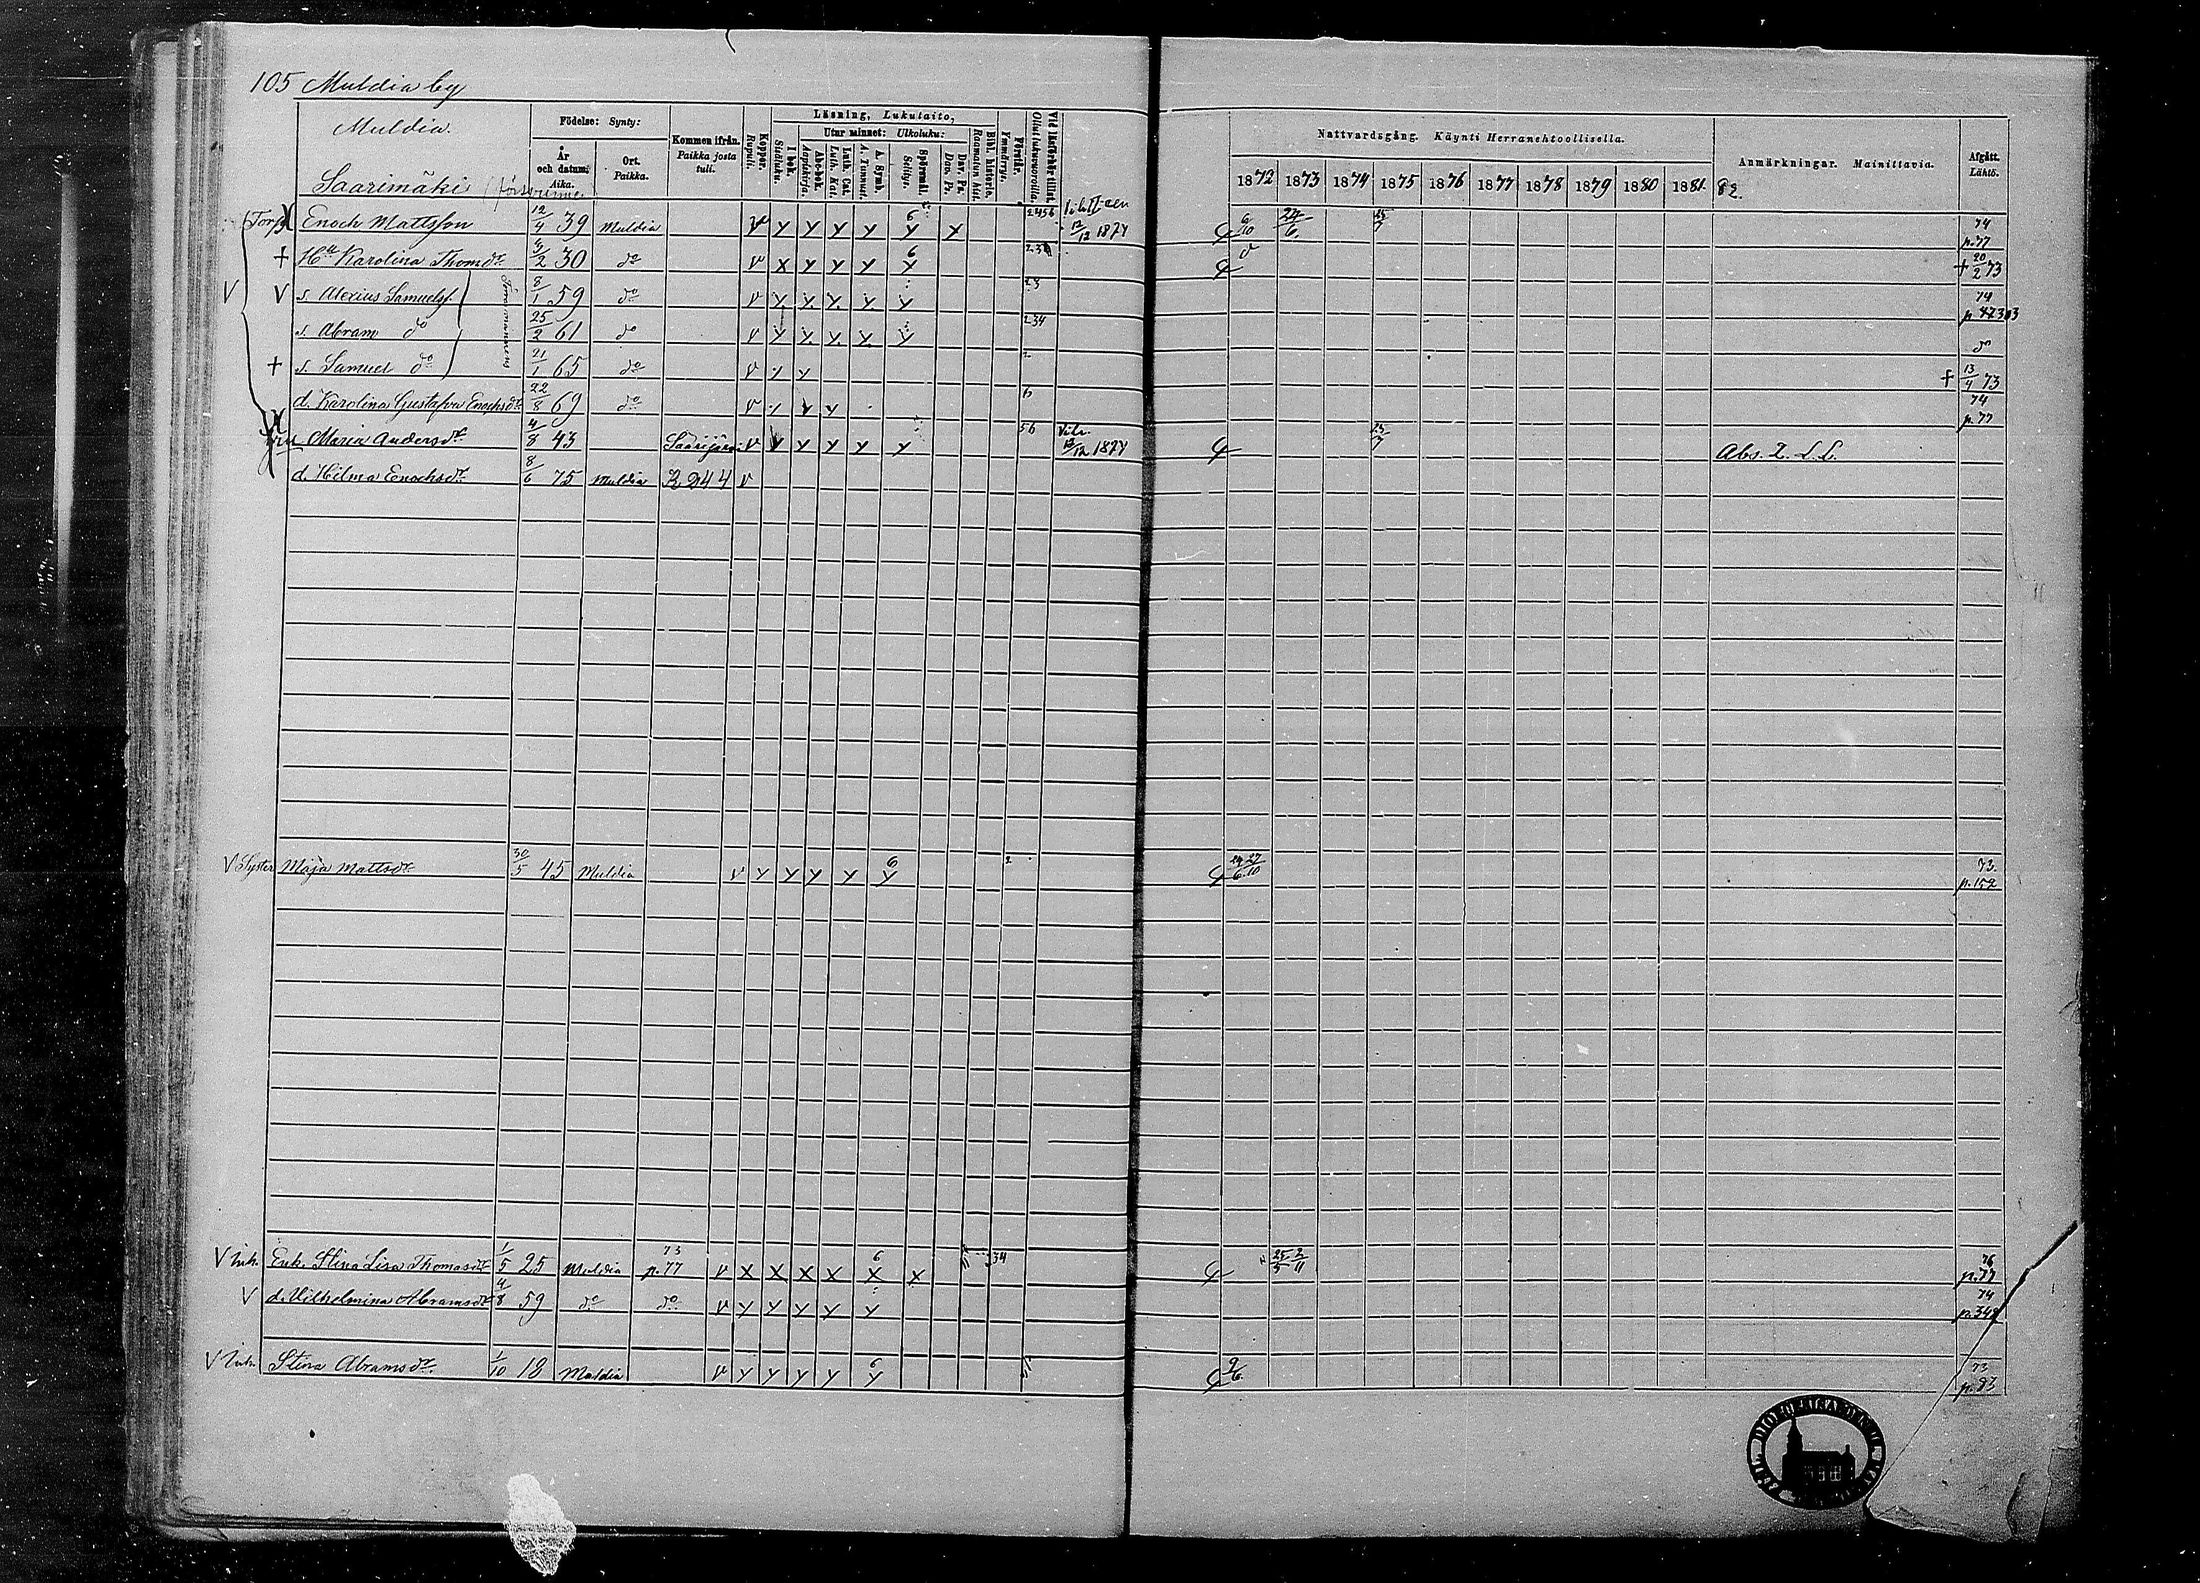 105 Muldia by
Muldia.
Saarimäki
Födelse: Synty:
År och datum. Aika.
Ort. Paikka.
Kommen ifrån. Paikka josta tuli.
Koppor. Rupuli.
Läsning, Lukutaito,
I bok. Sisäluku.
Utur minnet: Ulkoluku:
Abc-bok. Aapiskirja.
Luth. Cat. Luth. Kat.
A. Symb. A. Tunnust.
Spörsmål. Selitys.
Dav. Ps. Dav. Ps.
Bibl. historia. Raamatun hist.
Förstår. Ymmärrys.
Vid läsförhör tillst. Ollut lukuvuoroilla.
Nattvardsgång. Käynti Herranehtoollisella.
1872 1873 1874 1875 1876 1877 1878 1879 1880 1881 82.
Anmärkningar. Mainittavia.
Afgått. Lähtö.
Torp. Enoch Mattsson 12/4 39 Muldia v y y y y 6 y y 2456 12/12 1874 6/10 24/6 74 p. 77
† Hu Karolina Thomasdr 4/2 30 do v x y y y 6 y do † 20/2 73
V s. Alexius Samuelss. 8/1 59 do v y y y y y 23 74
s. Abram do 25/2 61 do v y y y y y 234 do
† s. Samuel do 21/1 65 do v y y 2 † 13/4 73
d. Karolina Gustafva Enochsdr 22/8 69 do v y y 6 74 p. 77
Maria Andersdr 4/8 43 Saarijärvi v v y y y y 56 12/12 1874 Abs. 2. L. L.
d. Hilma Enochsdr 8/6 75 Muldia K 244 v
V Syster Maja Mattsdr 30/5 45 Muldia v y y y y 6 y 2 27/10 73. p. 152
V Inh. Enk. Stina Lisa Thomasdr 1/5 25 Muldia 73 p. 77 v x x x x 6 x x 34 25/5 2/11 76 p. 77
V d. Vilhelmina Abramsdr 4/8 59 do do v y y y y y 74
V Inh. Stina Abramsdr 1/10 18 Muldia v y y y y 6 y 9/6 73 p. 83